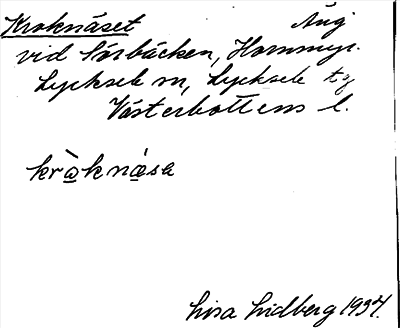 Kroknäset Äng
vid Sörbäcken, Hornmyr.
Lycksele sn, Lycksele tg
Västerbottens l.
kràknǽsa
Lisa Lidberg 1937.